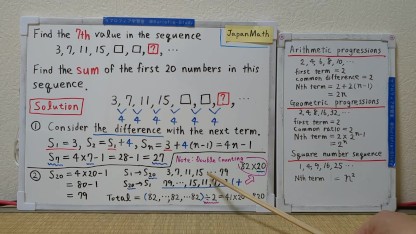 Find the 7th value in the sequence
3, 7, 11, 15, □, □, ?, ...
JapanMath
Find the sum of the first 20 numbers in this
sequence.
Solution
3, 7, 11, 15, □, □, ?, ...
4 4 4 4 4 4
① Consider the difference with the next term.
S₁ = 3, S₂ = S₁+4, Sn = 3+4(n-1) = 4n-1
S₇ = 4×7-1 = 28-1 = 27
Note: Double Counting
82×20
② S₂₀ = 4×20-1
= 80-1
= 79
S₁→S₂₀ 3, 7, 11, 15 ... 79
S₂₀→S₁ 79, ..., 15, 11, 7,
Total = (82, ..., 82, 82)÷2 = 41×
Arithmetic progressions
2, 4, 6, 8, 10, ...
first term = 2
common difference = 2
Nth term = 2+2(n-1)
= 2n
Geometric progressions
2, 4, 8, 16, 32, ...
first term = 2
Common ratio = 2
Nth term = 2×2ⁿ⁻¹
= 2ⁿ
Square number sequence
1, 4, 9, 16, 25 ...
Nth term = n²